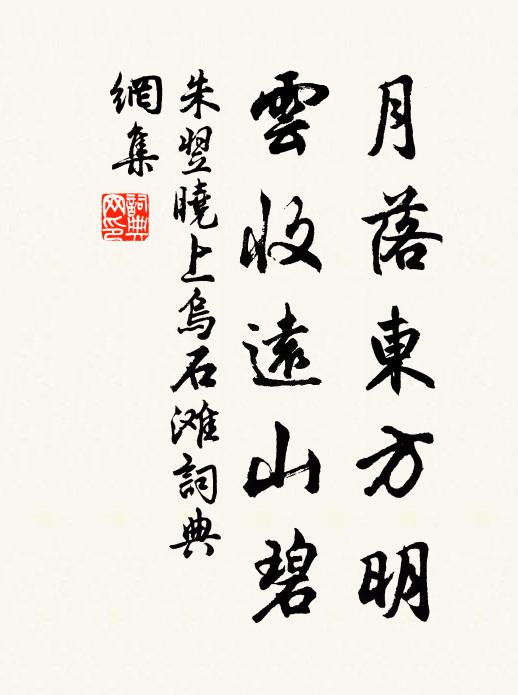 月落東方明
雲收遠山碧
朱翌曉上烏石滩詞典
網集
詞典
网印